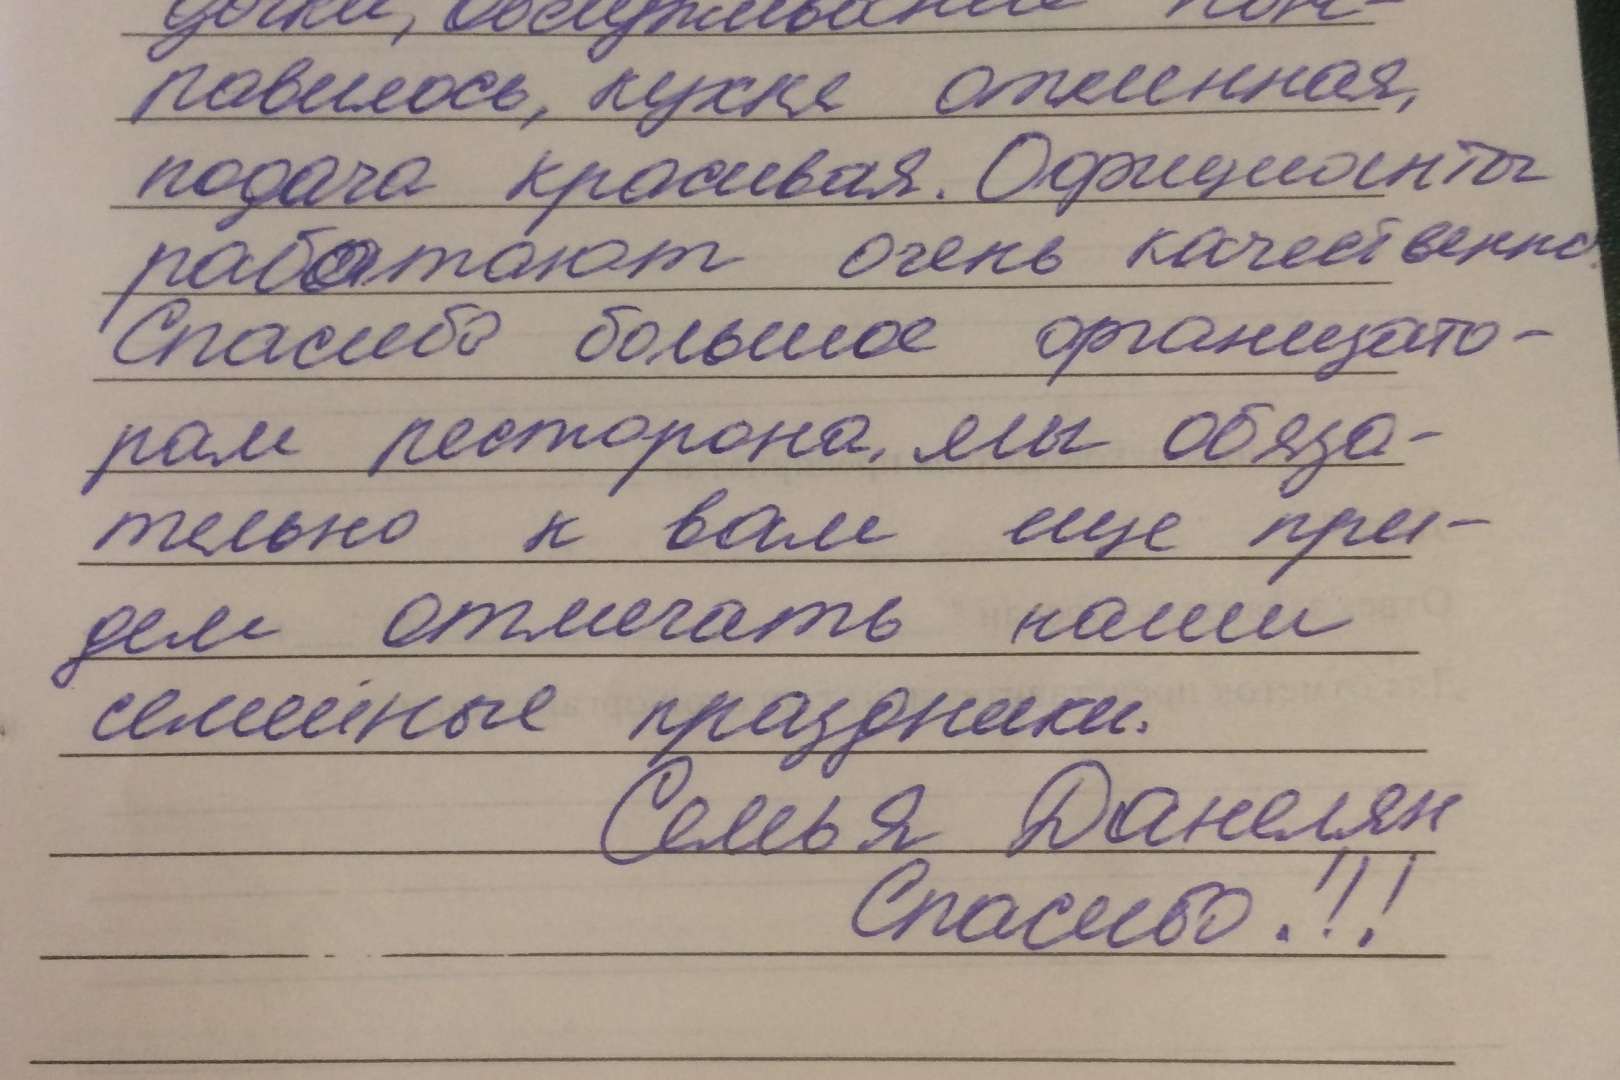 дочки, обслуживание пон-
равилось, кухня отменная,
подача красивая. Официанты
работают очень качественно.
Спасибо большое организато-
рам ресторона, мы обяза-
тельно к вам еще при-
дем отмечать наши
семейные праздники.
Семья Данелян
Спасибо!!!